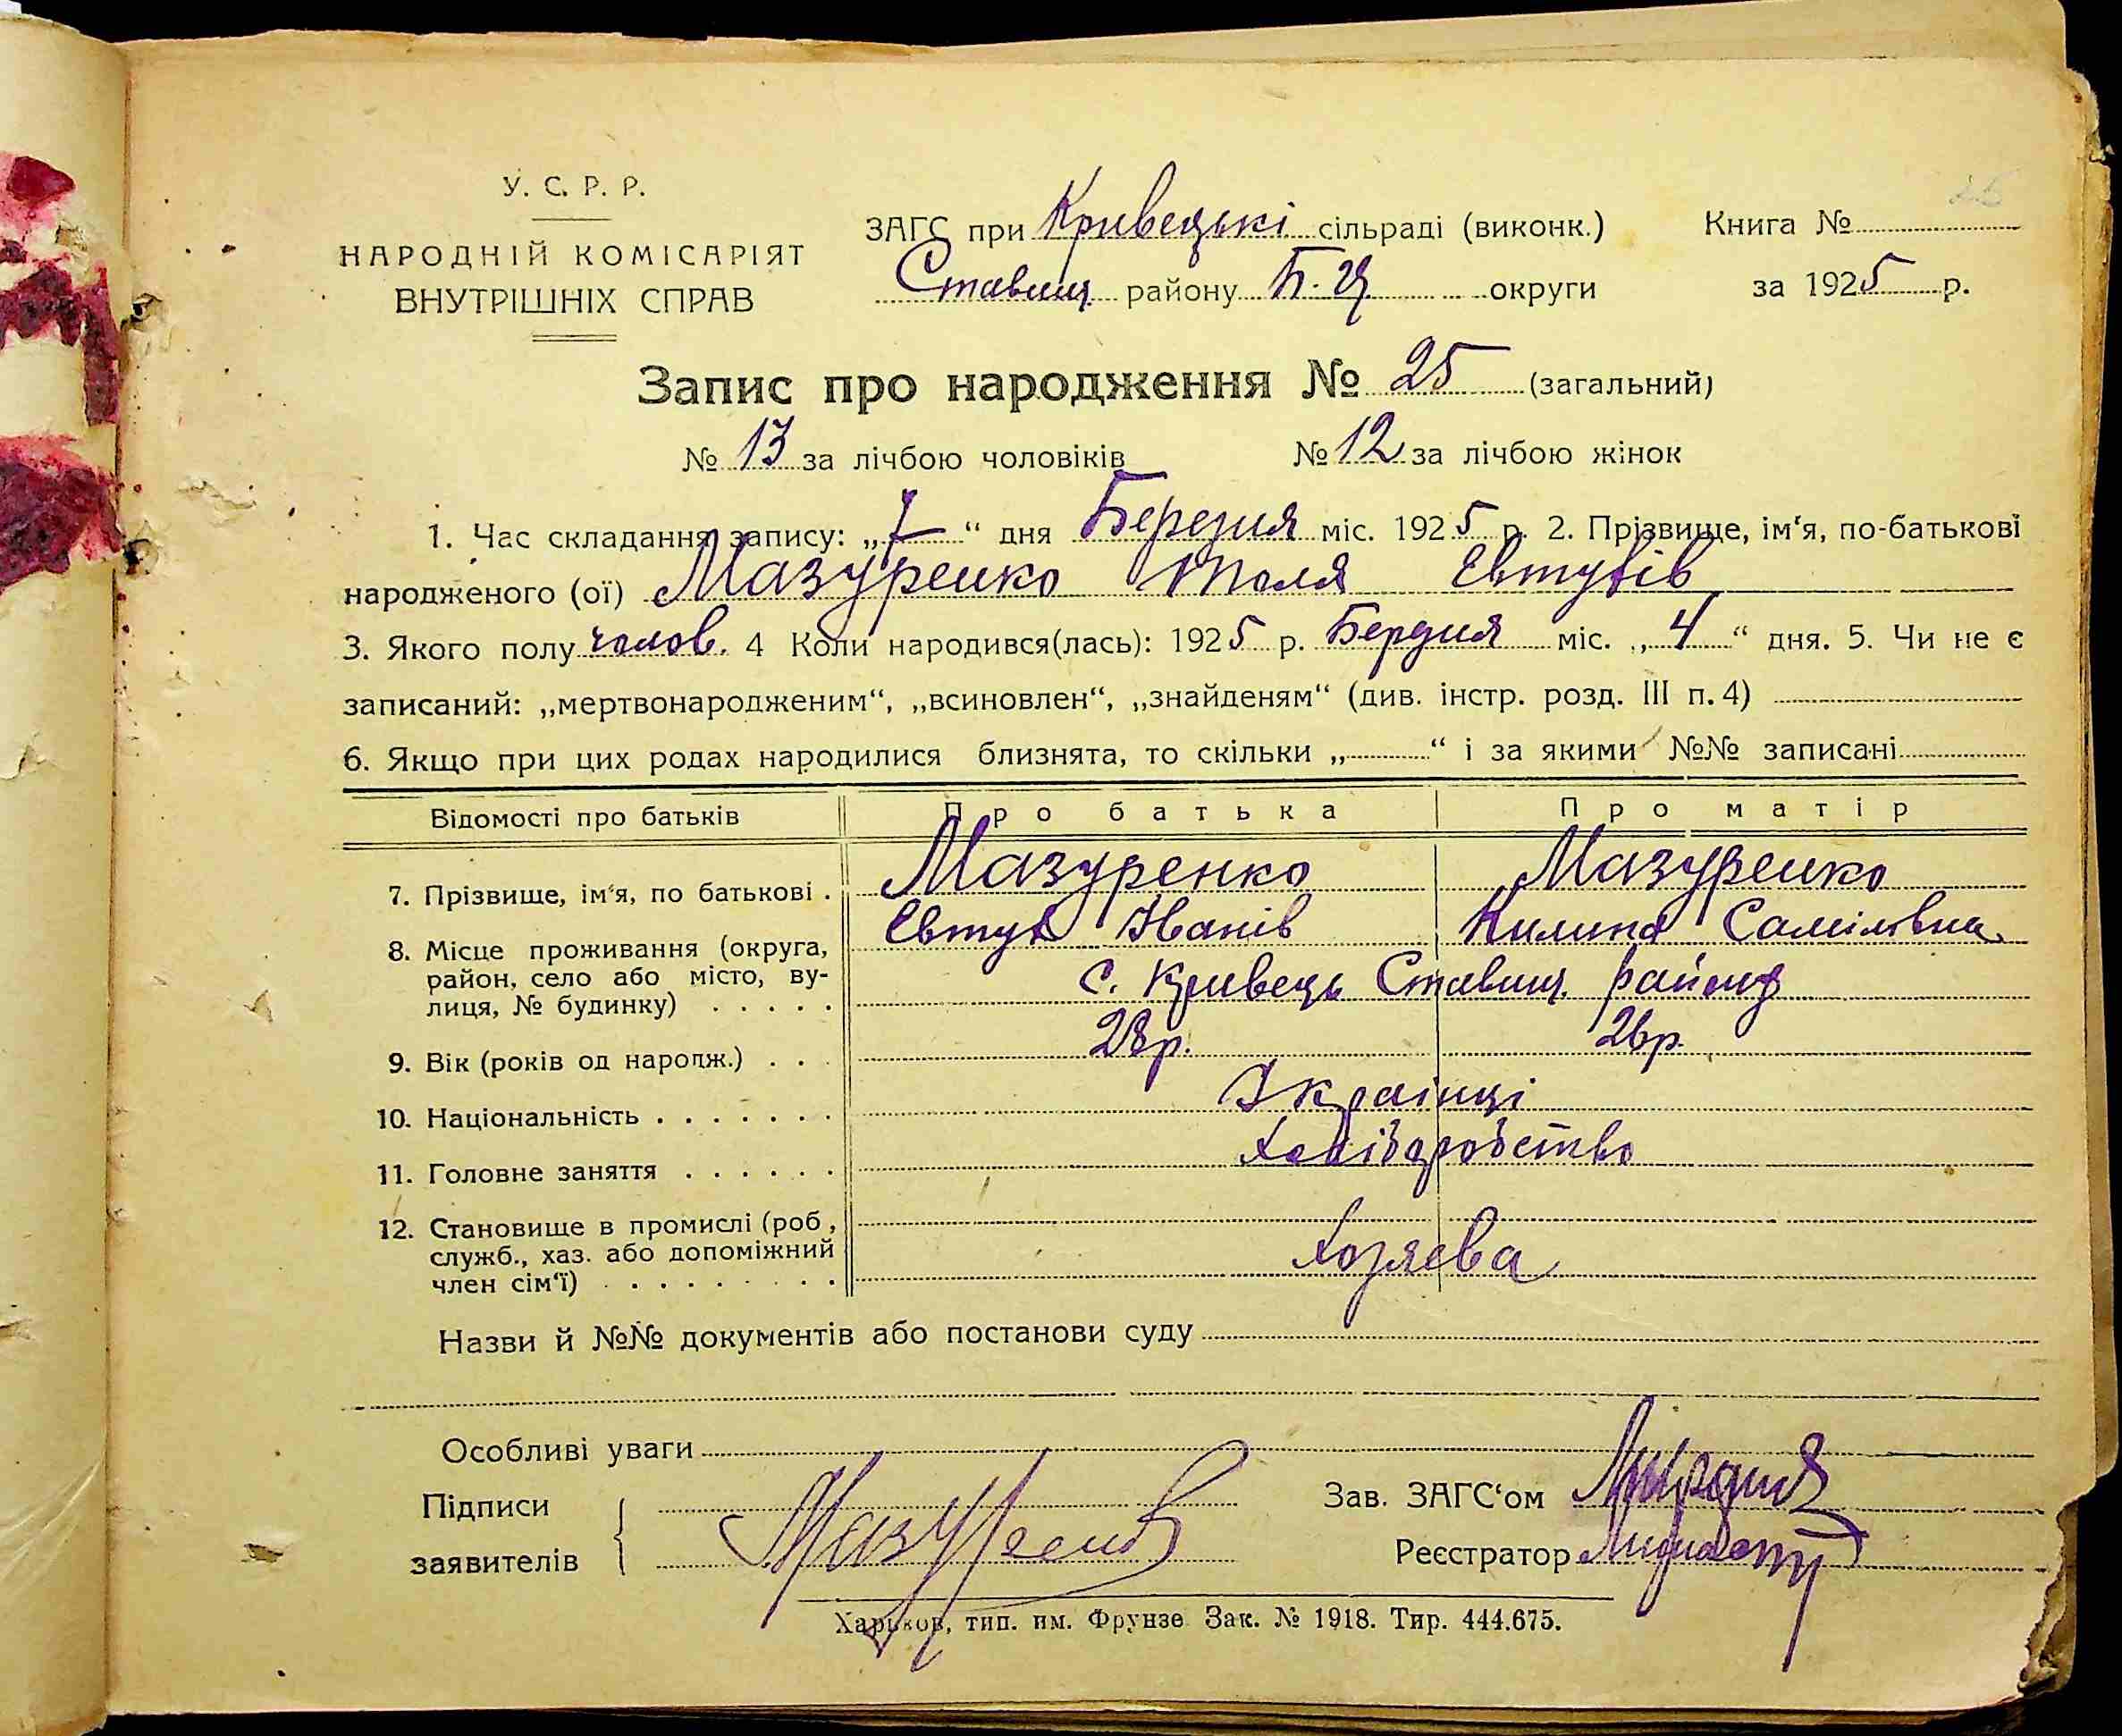 25
У. С. Р. Р.
НАРОДНІЙ КОМІСАРІЯТ
ВНУТРІШНІХ СПРАВ
ЗАГС при Кривецькі сільраді (виконк.)
Ставищ району Б. Ц округи
Книга №
за 1925 р.
Запис про народження № 25 (загальний)
№ 13 за лічбою чоловіків № 12 за лічбою жінок
1. Час складання запису: „7“ дня Березня міс. 1925 р. 2. Прізвище, ім‘я, по-батькові
народженого (ої) Мазуренко Толя Евтухів
3. Якого полу чолов. 4 Коли народився(лась): 1925 р. Бердня міс. „4“ дня. 5. Чи не є
записаний: „мертвонародженим“, „всиновлен“, „знайденям“ (див. інстр. розд. III п. 4)
6. Якщо при цих родах народилися близнята, то скільки „ “ і за якими №№ записані
Відомості про батьків Про батька Про матір
7. Прізвище, ім‘я, по батькові . Мазуренко Мазуренко
Евтух Іванів Килина Самілівна
8. Місце проживання (округа,
район, село або місто, ву-
лиця, № будинку) . . . . . с. Кривець Ставищ. району
9. Вік (років од народж.) . . . 28 р. 26 р.
10. Національність . . . . . . . Українці
11. Головне заняття . . . . . . Хлібдробство
12. Становище в промислі (роб,
служб., хаз. або допоміжний
член сім‘ї) . . . . . . . . Хозяева
Назви й №№ документів або постанови суду
Особливі уваги
Підписи
заявителів
Мазуренко
Зав. ЗАГС‘ом
Реєстратор
Харьков, тип. им. Фрунзе Зак. № 1918. Тир. 444.675.